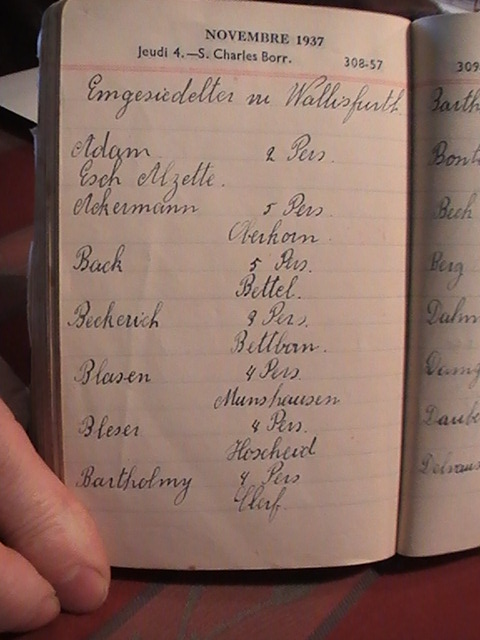 NOVEMBRE 1937
Jeudi 4.—S. Charles Borr. 308-57
Emgesiedelter in Wallisfurth
Adam 2 Pers.
Esch Alzette.
Ackermann 5 Pers
Oberkorn.
Back 5 Pers.
Bettel.
Beckerich 9 Pers.
Bettborn.
Blasen 4 Pers.
Munshausen
Bleser 4 Pers.
Hoscheid
Bartholmy 4 Pers
Clerf.
309
Barth
Bont
Bech
Berg
Dahm
Daub